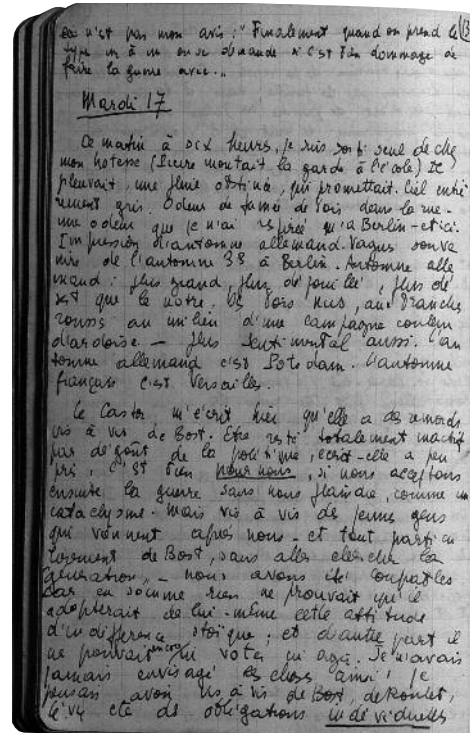 ça n'est pas mon avis : " Finalement quand on prend le
type un à un on se demande si c'est bien dommage de
faire la guerre avec..
Mardi 17
Ce matin à dix heurs, je suis sorti seul de chez
mon hotesse (montait la garde à l'école) Il
pleuvait, une pluie obstinée, qui promettait. Ciel entiè
rement gris. Odeur de fumée de bois dans la rue -
une odeur que je n'ai respirée qu'à Berlin - et ici.
Impression d'automne allemand. Vagues souve
nirs de l'automne 33 à Berlin. Automne alle
mand : plus grand, plus dépouillé, plus dé
sert que le notre. Des bois nus, aux branches
rousses au milieu d'une campagne couleur
d'ardoise. - plus sentimental aussi. L'au
tomne allemand c'est Potsdam. L'automne
français c'est Versailles.
Le Castor m'écrit hier qu'elle a des remords
vis à vis de Bost. Etre resté totalement inactif
par dégoût de la politique, écrit-elle à peu
près, c'est bien pour nous, si nous acceptons
ensuite la guerre sans nous plaindre, comme un
cataclysme. Mais vis à vis des jeunes gens
qui viennent après nous - et tout particu
lièrement de Bost, sans aller chercher la
"génération" - nous avons été coupables
car en somme rien ne prouvait qu'il
adopterait de lui-même cette attitude
d'indifférence stoïque ; et d'autre part il
ne pouvait encore ni voter ni agir. Je n'avais
jamais envisagé les choses ainsi ; je
pensais avoir vis à vis de Bost, de
Lévy etc des obligations individuelles